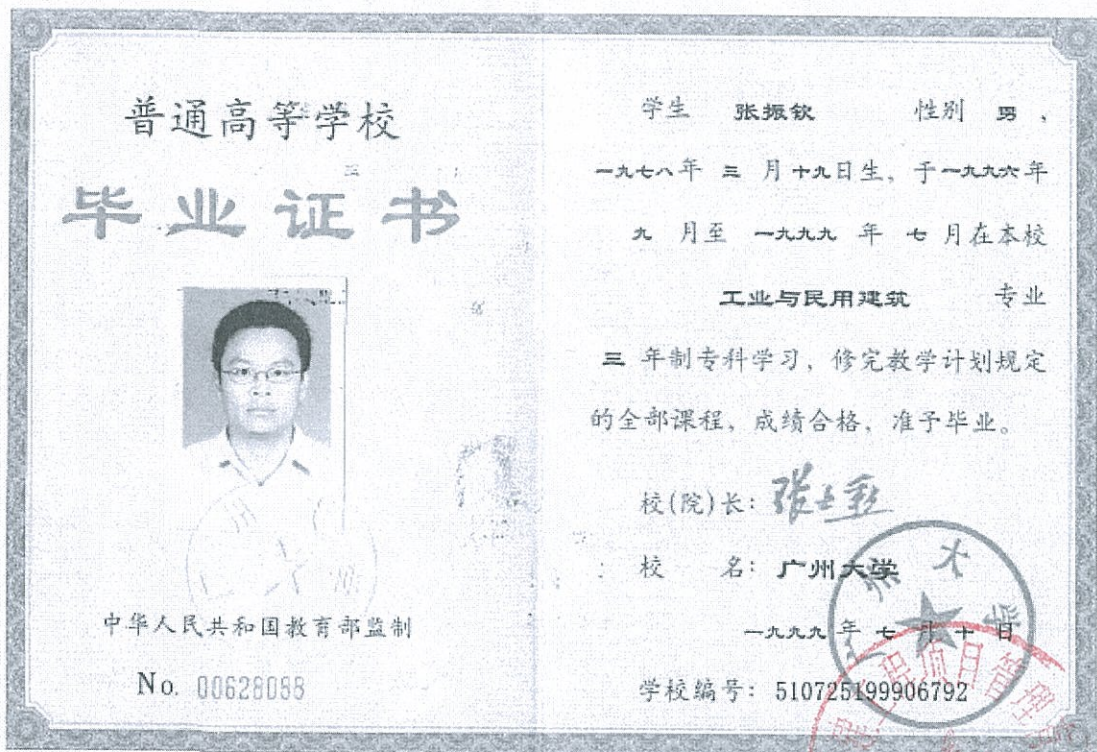 普通高等学校
毕业证书
中华人民共和国教育部监制
No. 00628088
学生 张振钦 性别 男，
一九七八年 三 月十九日生，于一九九六年
九 月至 一九九九 年 七 月在本校
工业与民用建筑 专业
三 年制专科学习，修完教学计划规定
的全部课程，成绩合格，准予毕业。
校(院)长：
校 名：广州大学
一九九九 年 七 月 十 日
学校编号：510725199906792
广州大学
工程项目管理